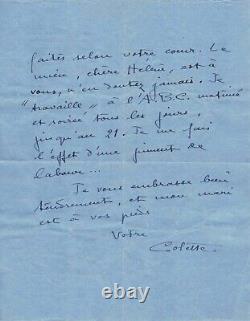 faites selon votre cœur. Le
mien, chère Hélène, est à
vous, n'en doutez jamais. Je
"travaille" à l'A.B.C. matinée
et soirée tous les jours,
jusqu'au 21. Je me fais
l'effet d'une jument de
labour...
Je vous embrasse bien
tendrement, et mon mari
est à vos pieds.
Votre
Colette
thecollectibles